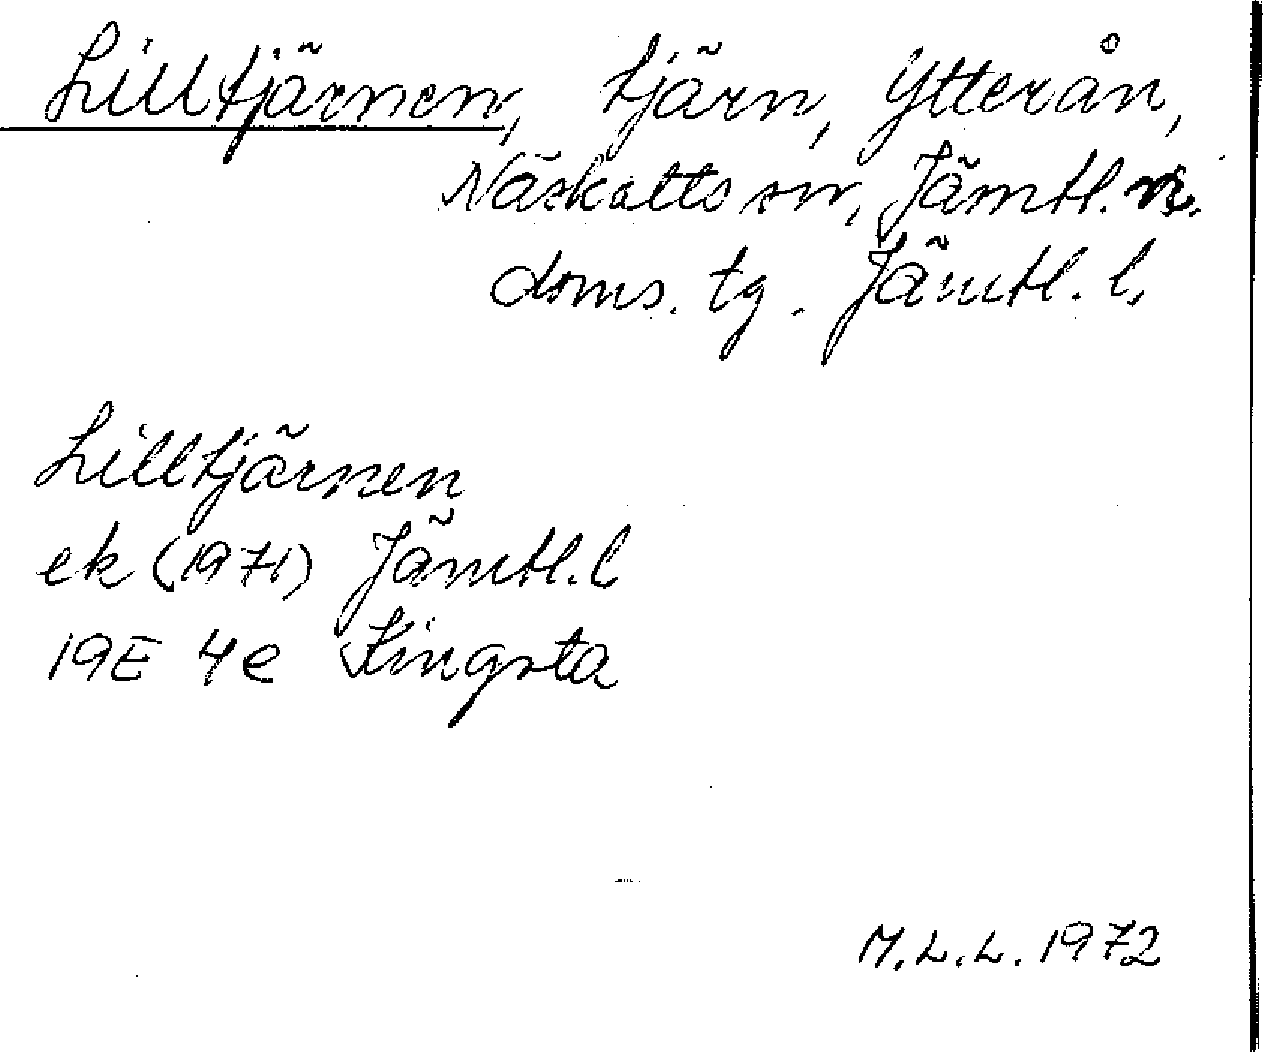 Lilltjärnen, tjärn, Ytterån,
Näskotts sn, Jämtl. v.
doms. tg. Jämtl. l.
Lilltjärnen
ek (1971) Jämtl. l
19E 4e Kingsta
M.L.L. 1972